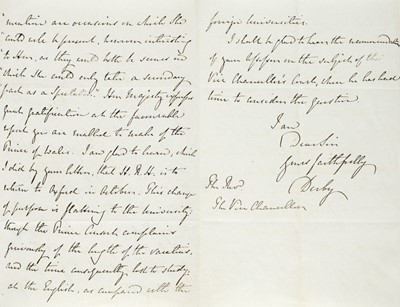 "mention are occasions on which She
"could not be present, however interesting
"to Her, as they could both be scenes in
"which She could only take a secondary
"part as a Spectator." Her Majesty expresses
great gratification at the favourable
report you are enabled to make of the
Prince of Wales. I am glad to learn, which
I did by your letter, that H.R.H. is to
return to Oxford in October. This change
of purpose is flattering to the University;
though the Prince Consort complains
grievously of the length of the vacations,
and the time consequently lost to study,
at the English, as compared with the
foreign Universities.
I shall be glad to hear the
of your on the subject of the
Vice Chancellor's Court, when he has had
time to consider the question.
I am
Dear Sir
Yours faithfully
Derby
The Revd
The Vice Chancellor